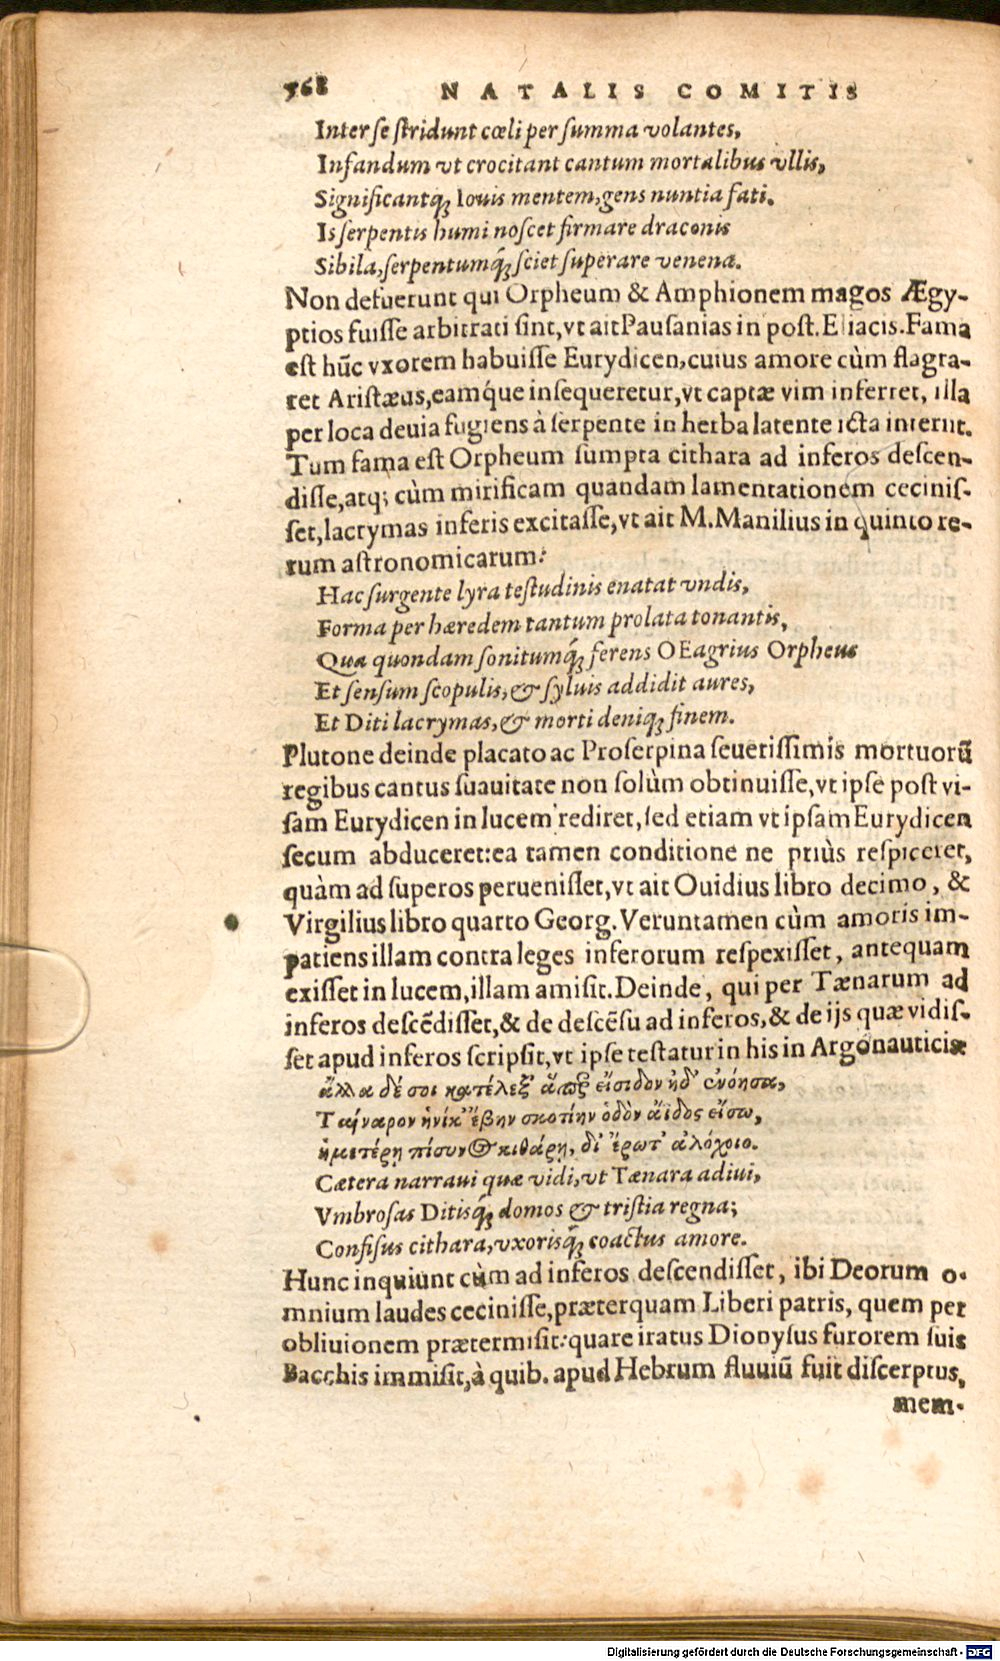 768 NATALIS COMITIS
Inter se stridunt cœli per summa volantes,
Infandum vt crocitant cantum mortalibus vllis,
Significantq́; Iouis mentem, gens nuntia fati.
Is serpentis humi noscet firmare draconis
Sibila, serpentumq́; sciet superare venena.
Non defuerunt qui Orpheum & Amphionem magos Ægy-
ptios fuisse arbitrati sint, vt ait Pausanias in post. Eliacis. Fama
est hūc vxorem habuisse Eurydicen, cuius amore cùm flagra-
ret Aristæus, eamq́ue insequeretur, vt captæ vim inferret, illa
per loca deuia fugiens à serpente in herba latente icta interiit.
Tum fama est Orpheum sumpta cithara ad inferos descen-
disse, atq; cùm mirificam quandam lamentationem cecinis-
set, lacrymas inferis excitasse, vt ait M. Manilius in quinto re-
rum astronomicarum:
Hac surgente lyra testudinis enatat vndis,
Forma per hæredem tantum prolata tonantis,
Qua quondam sonitumq́; ferens OEagrius Orpheus
Et sensum scopulis, & syluis addidit aures,
Et Diti lacrymas, & morti deniq; finem.
Plutone deinde placato ac Proserpina seuerissimis mortuorū
regibus cantus suauitate non solùm obtinuisse, vt ipse post vi-
sam Eurydicen in lucem rediret, sed etiam vt ipsam Eurydicen
secum abduceret: ea tamen conditione ne priùs respiceret,
quàm ad superos peruenisset, vt ait Ouidius libro decimo, &
Virgilius libro quarto Georg. Veruntamen cùm amoris im-
patiens illam contra leges inferorum respexisset, antequam
exisset in lucem, illam amisit. Deinde, qui per Tænarum ad
inferos descēdisset, & de descēsu ad inferos, & de ijs quæ vidis-
set apud inferos scripsit, vt ipse testatur in his in Argonauticis
ἄλλα δέ σοι κατέλεξ' ἅπερ εἴσιδον ἠδ' ἐνόησα,
Ταίναρον ἡνίκ' ἔβην σκοτίην ὁδὸν ἄϊδος εἴσω,
ἡμετέρῃ πίσυνος κιθάρῃ, δι' ἔρωτ' ἀλόχοιο.
Cætera narraui quæ vidi, vt Tænara adiui,
Vmbrosas Ditisq́; domos & tristia regna;
Confisus cithara, vxorisq́; coactus amore.
Hunc inquiunt cùm ad inferos descendisset, ibi Deorum o-
mnium laudes cecinisse, præterquam Liberi patris, quem per
obliuionem prætermisit: quare iratus Dionysus furorem suis
Bacchis immisit, à quib. apud Hebrum fluuiū fuit discerptus,
mem-
Digitalisierung gefördert durch die Deutsche Forschungsgemeinschaft - DFG